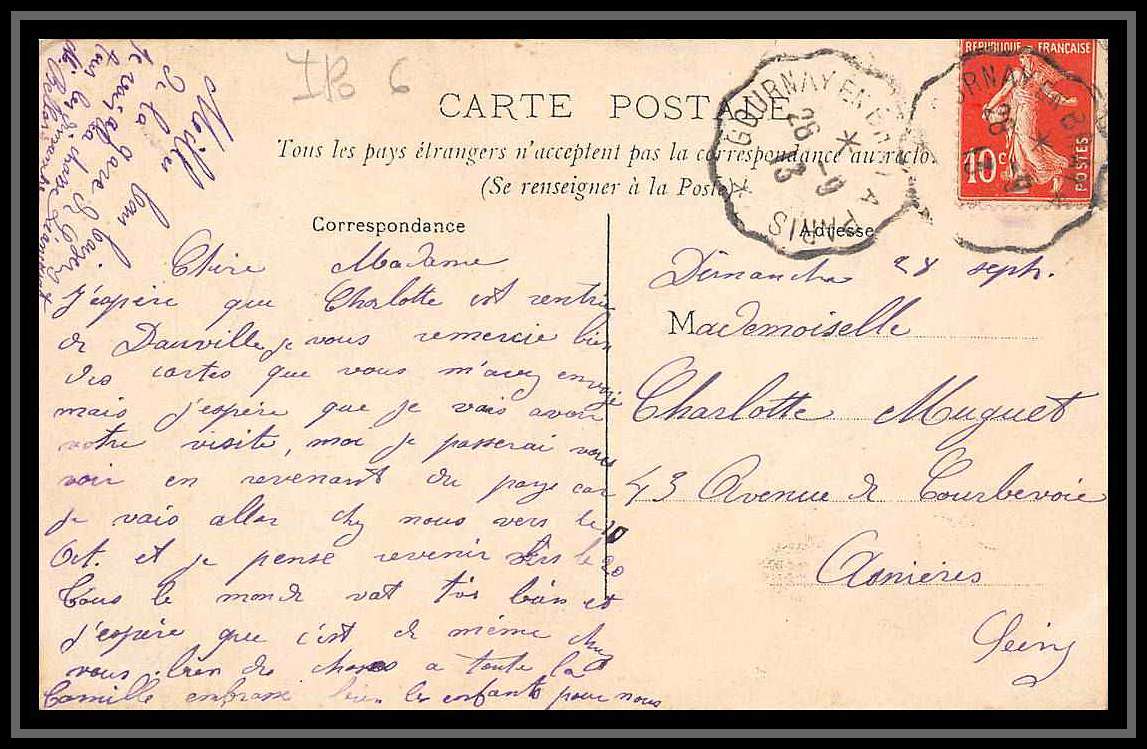 IPB 6
CARTE POSTALE
Tous les pays étrangers n'acceptent pas la correspondance au recto.
(Se renseigner à la Poste)
Correspondance
Chère Madame
J'espère que Charlotte est rentrée
de Dauville je vous remercie bien
des cartes que vous m'avez envoyé
mais j'espère que je vais avoir
votre visite, moi je passerai vous
voir en revenant du pays car
je vais aller chez nous vers le 10
Oct. et je pense revenir vers le 20
Tous le monde vat très bien et
j'espère que c'est de même chez
vous bien de choses a toute la
famille embrassé bien les enfants pour nous
Meilleurs
de la
gare
Adresse
Dimanche 28 sept.
Mademoiselle
Charlotte Muguet
43 Avenue de Courbevoie
Asnières
Seine
GOURNAY-EN-BRAY A PARIS
28 -9
13
REPUBLIQUE FRANÇAISE
10c
POSTES